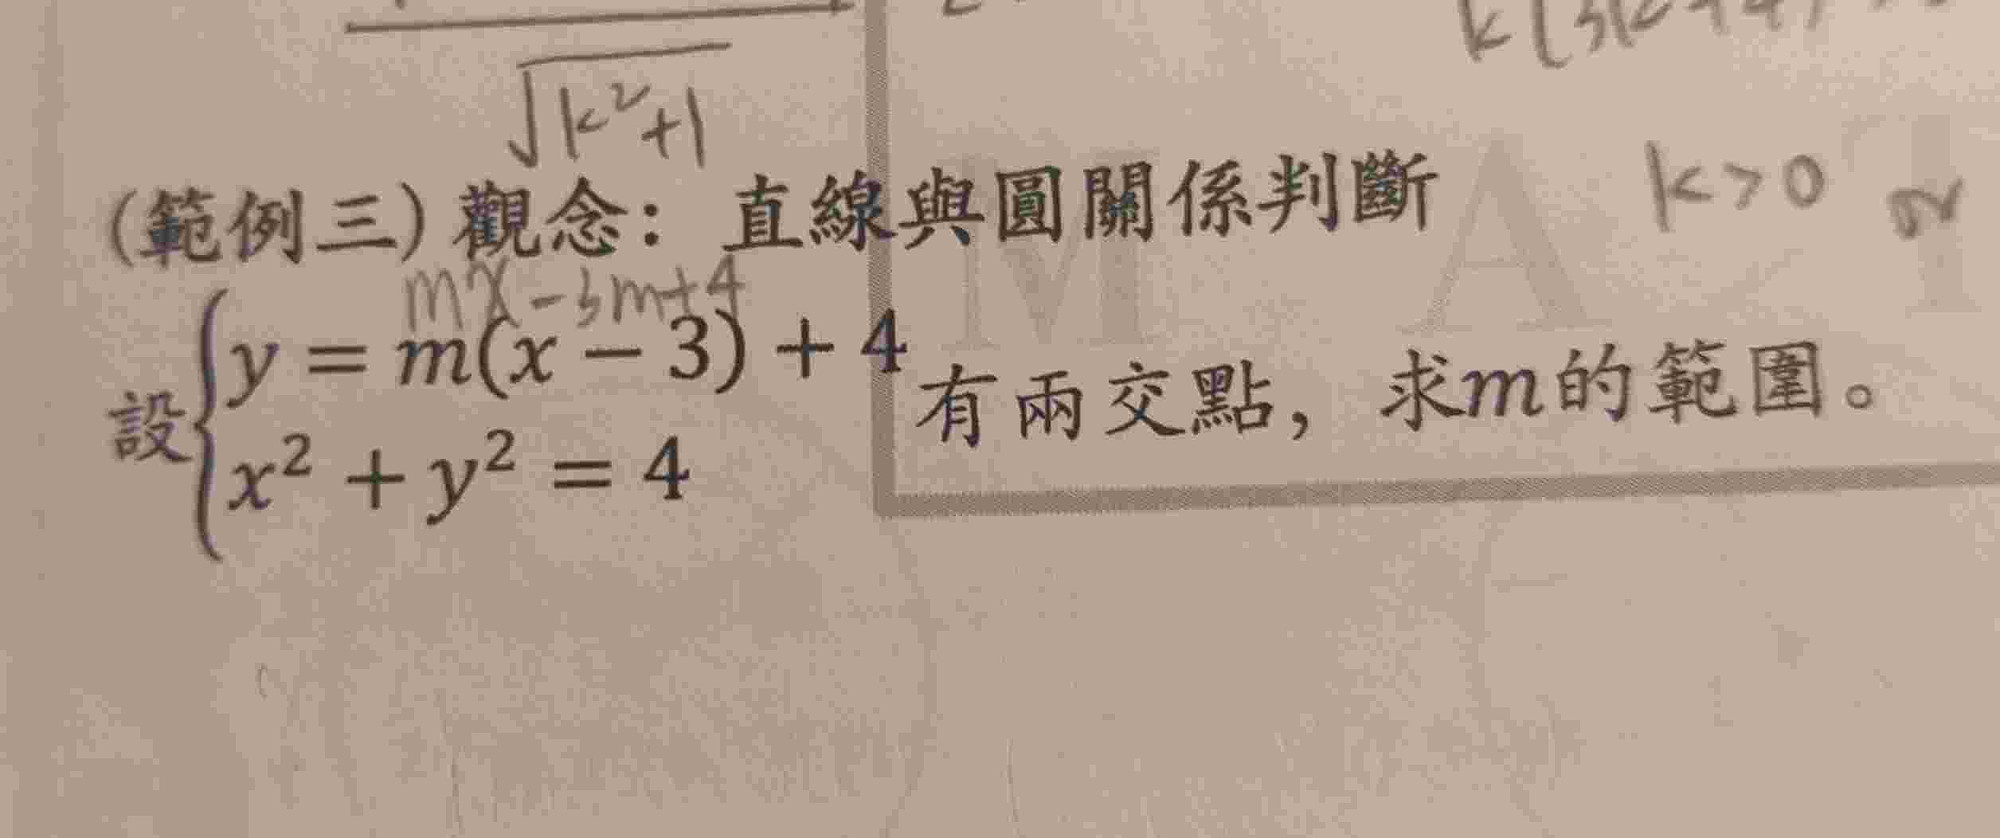 √k²+1
k>0
(範例三) 觀念：直線與圓關係判斷
mx-3m+4
設{y = m(x − 3) + 4
x² + y² = 4
有兩交點，求m的範圍。
M A